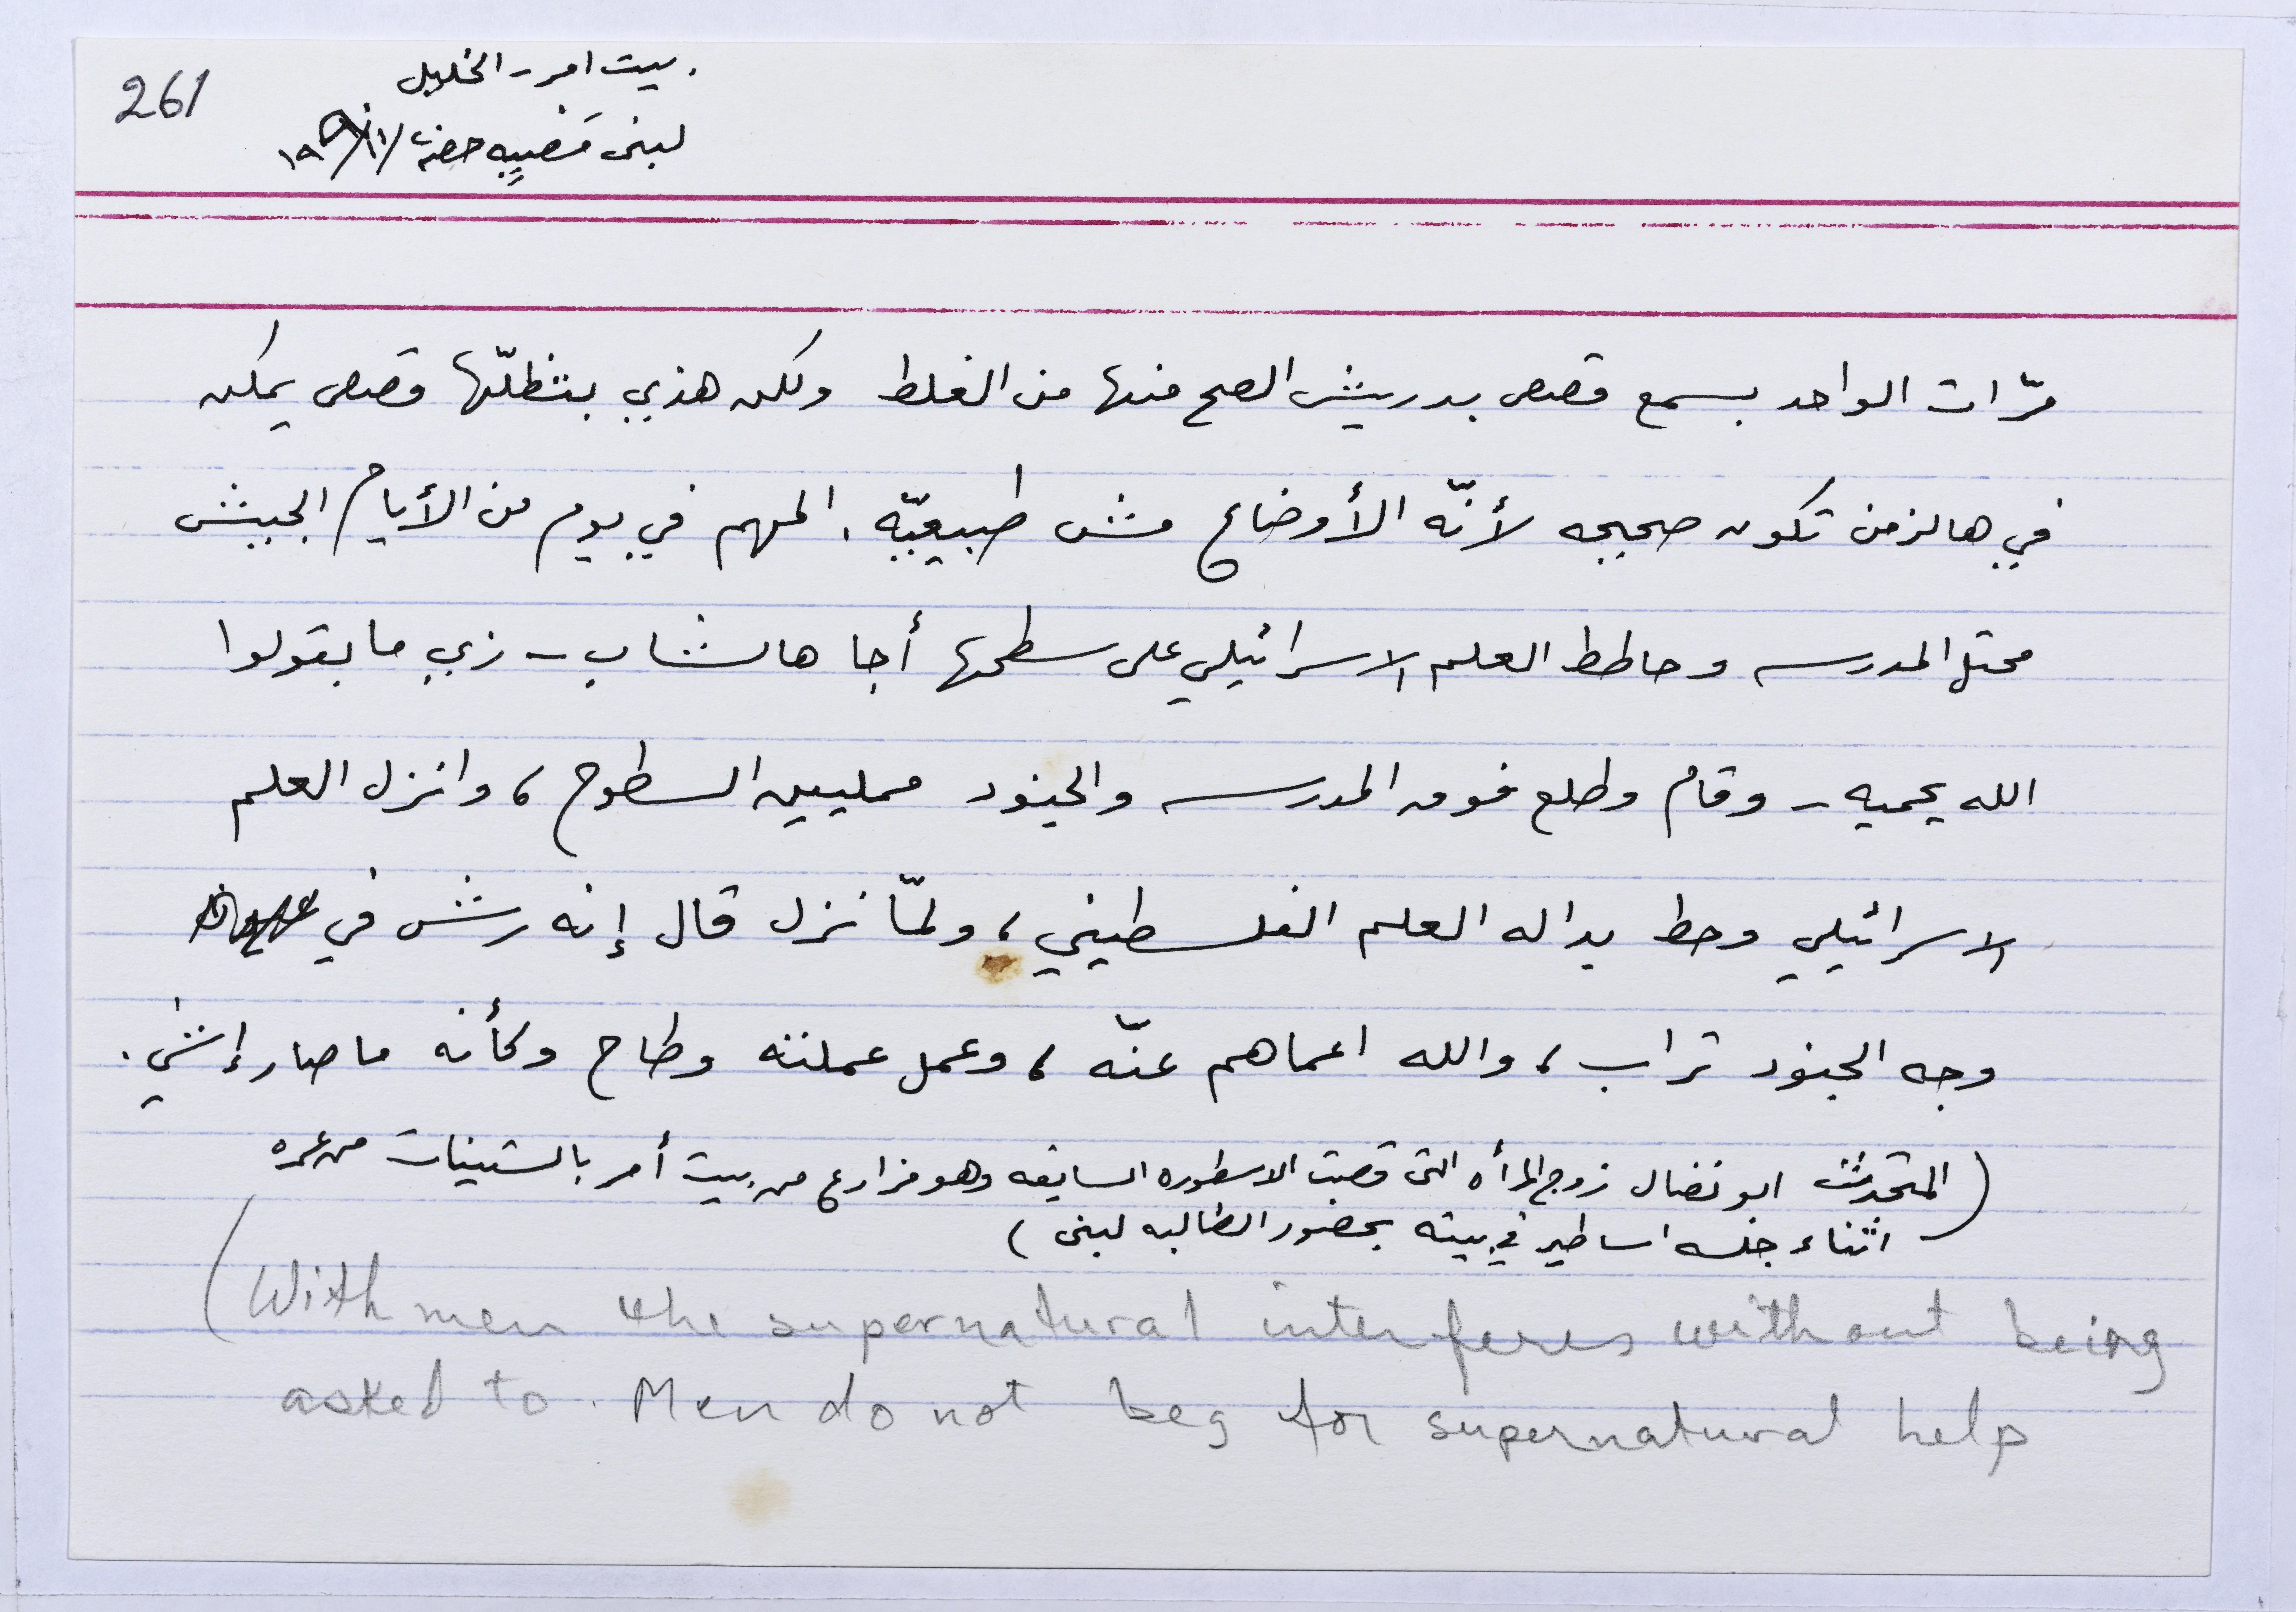 261
بيت امر - الخليل
لبنى
مرّات الواحد بسمع قصص بدريش الصح منها من الغلط ولكن هذي بتظلّها قصص يمكن
في هالزمن تكون صحيحه لأنّه الأوضاع مش طبيعيّه. المهم في يوم من الأيام الجيش
محتل المدرسه وحاطط العلم الاسرائيلي على سطحها أجا هالشاب - زي ما بقولوا
الله يحميه - وقام وطلع فوق المدرسه والجنود مملييين السطوح، وانزل العلم
الاسرائيلي وحط بداله العلم الفلسطيني، ولمّا نزل قال إنه رش في
وجه الجنود تراب، والله اعماهم عنّه، وعمل عملته وطاح وكأنه ما صار إشي.
(المتحدث ابو نضال زوج المرأه التي قصت الاسطوره السابقه وهو مزارع من بيت أمر بالستينات من عمره
اثناء جلسه اساطير في بيته بحضور الطالبه لبنى)
(With men the supernatural interferes without being
asked to. Men do not beg for supernatural help